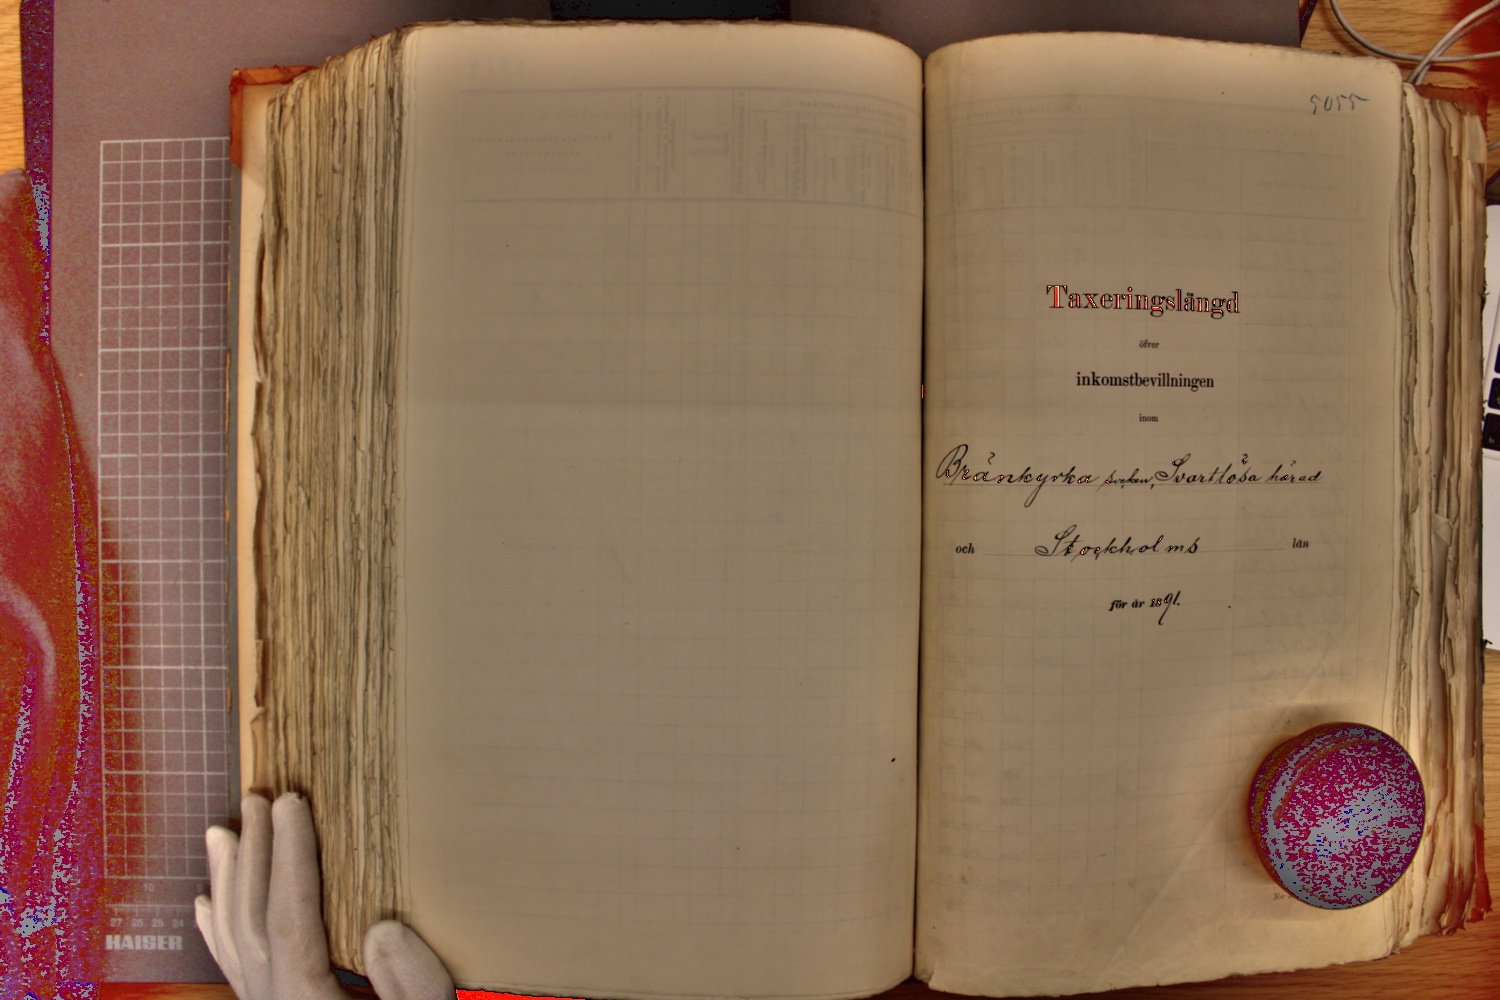 5055
Taxeringslängd
öfver
inkomstbevillningen
inom
Bränkyrka socken, Svartlösa härad
och Stockholms län
för år 1891.
10
27 26 25 24
KAISER